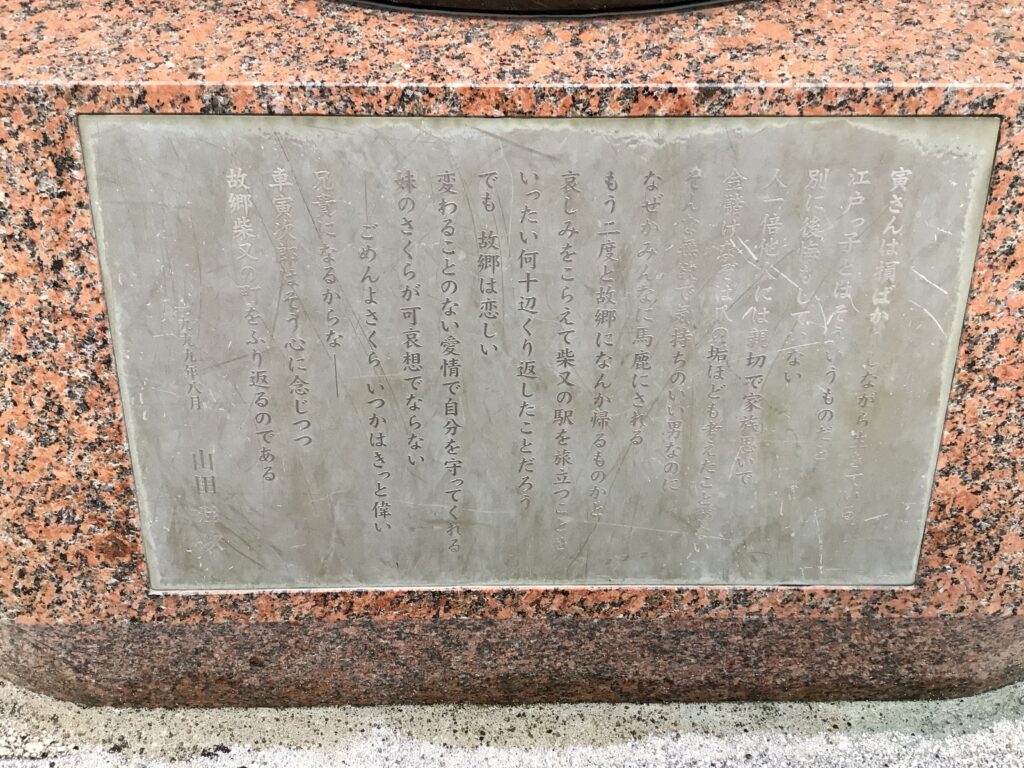 寅さんは損ばかりしながら生きている
江戸っ子とはそういうものだと
別に後悔もしていない
人一倍他人には親切で家族思いで
金儲けなぞは爪の垢ほども考えたことがない
そんな無欲で気持ちのいい男なのに
なぜかみんなに馬鹿にされる
もう二度と故郷になんか帰るものかと
哀しみをこらえて柴又の駅を旅立つことを
いったい何十辺くり返したことだろう
でも 故郷は恋しい
変わることのない愛情で自分を守ってくれる
妹のさくらが可哀想でならない
――ごめんよさくら いつかはきっと偉い
兄貴になるからな――
車寅次郎はそう心に念じつつ
故郷柴又の町をふり返るのである
一九九九年八月
山田洋次